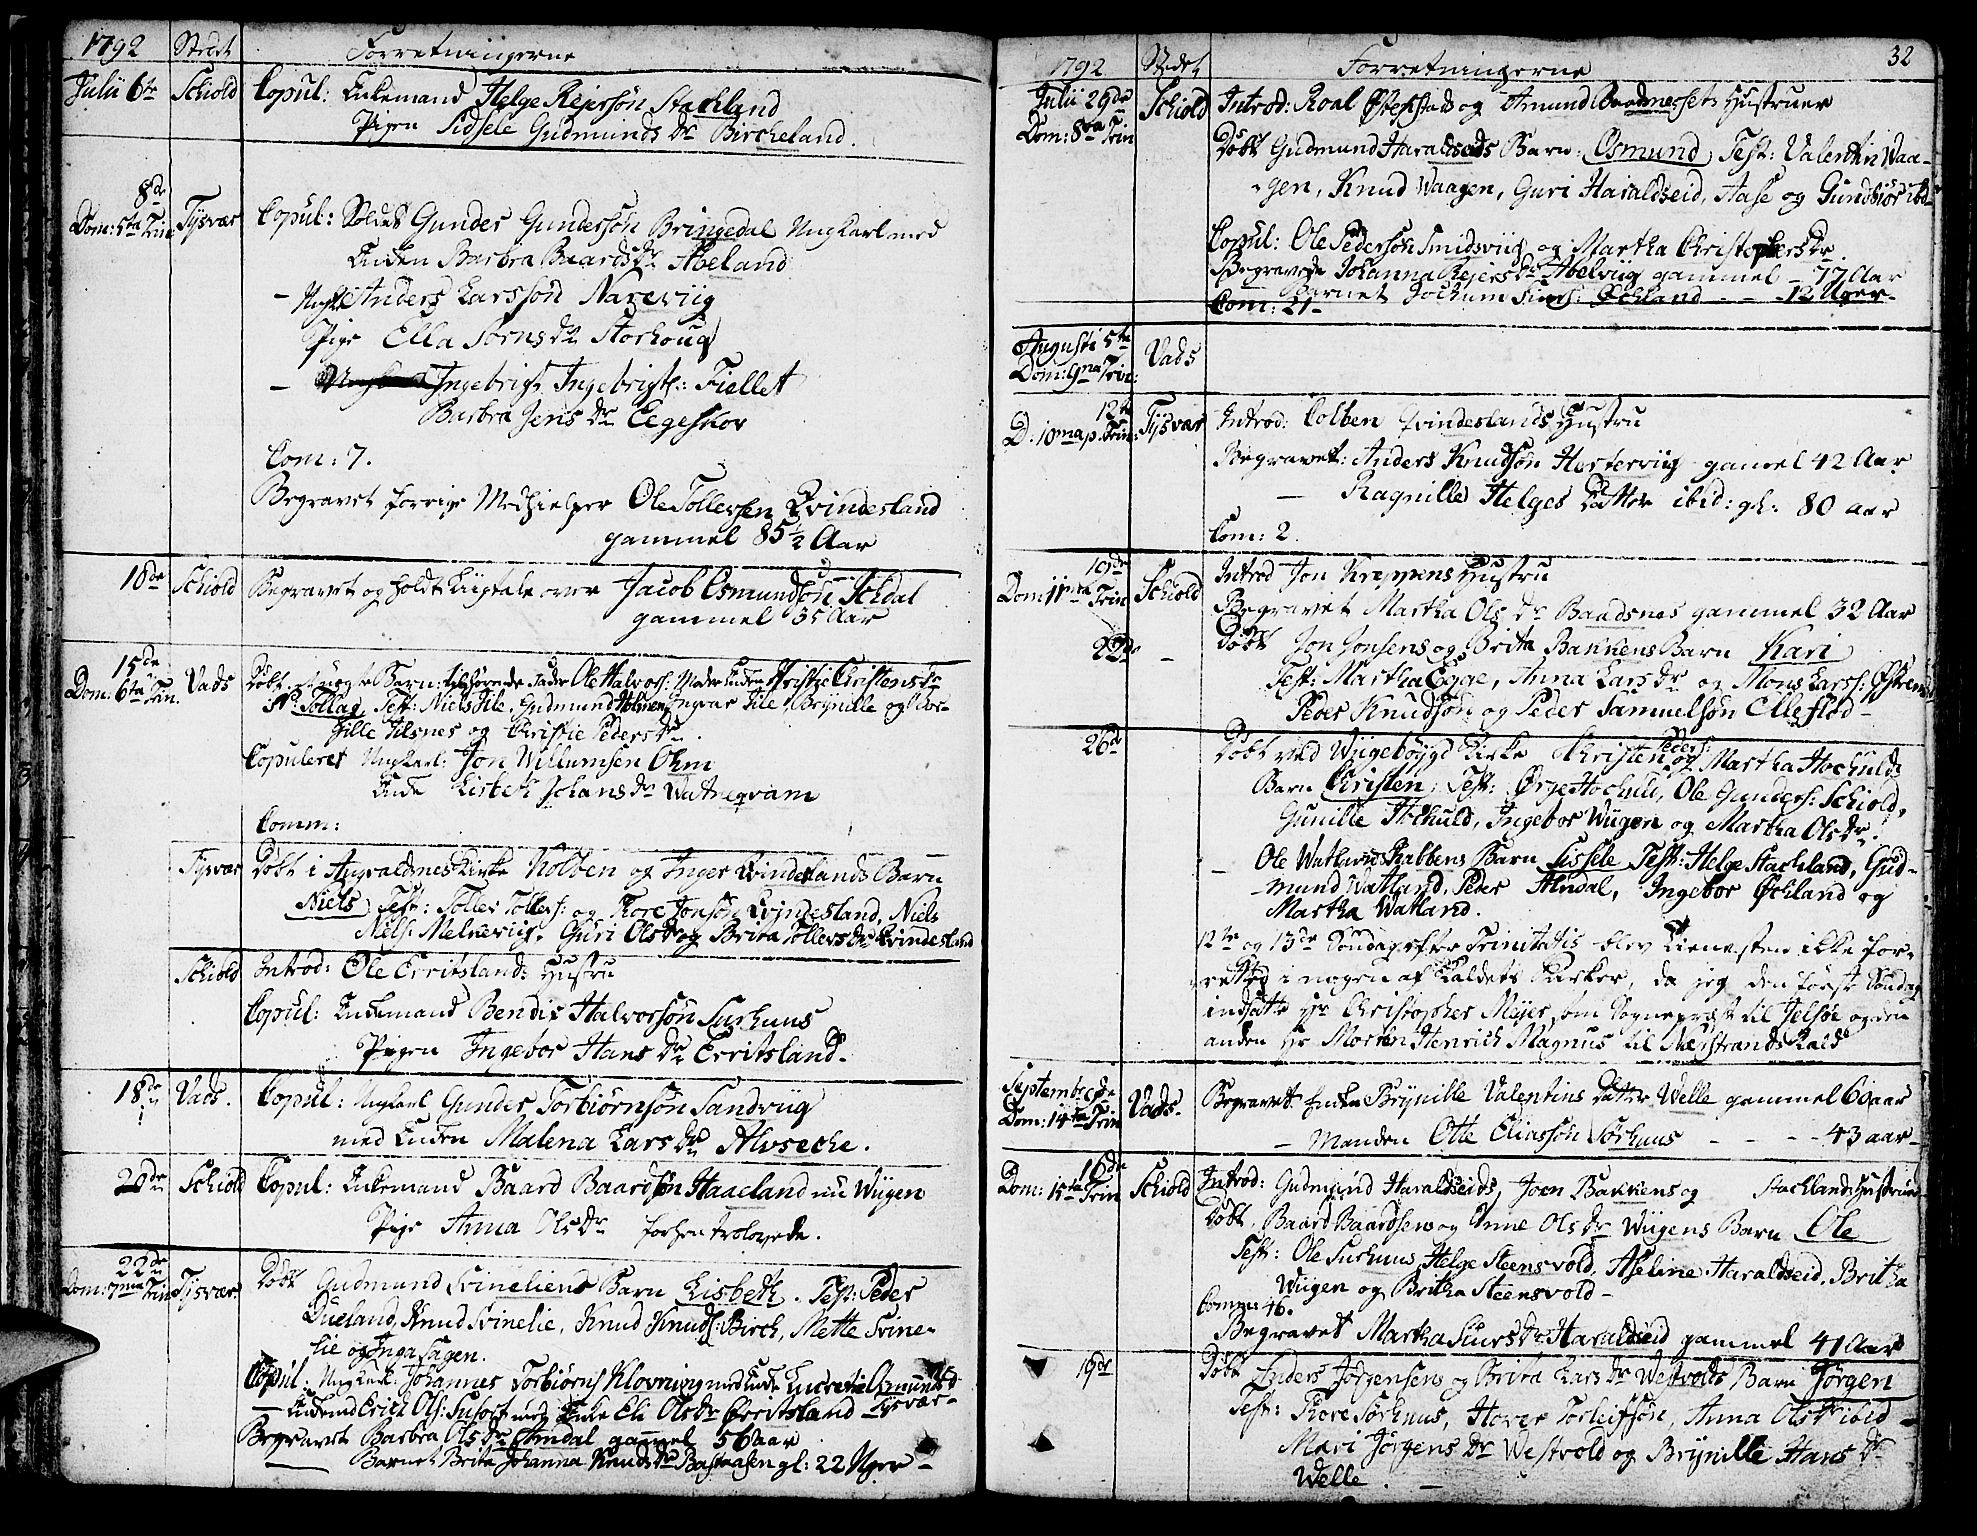 1792 Stedet Forretningerne
Julii 6te Schiold Copul: Enkemand Helge Rejersøn Stachland
Pigen Sidsele Gudmunds Dr Bircheland.
8de
Dom: 5ta Trin Tysvær Copul: Soldat Gunder Gundersøn Bringedal Ungkarl med
Enken Barbra Baards Dr Abeland
- Anders Larssøn Narreviig
Pige Ella Sørns Dr Storhoug
- Ingebrigt Ingebrigts: Fiellet
Barbra Jens Dr Eegeskov
Com: 7.
Begravet forrige Medhielper Ole Tollevsen Qvindesland
gammel 85 1/2 Aar
10de Schiold Begravet og holdt Liigtale over Jacob Osmundsøn Isdal
gammel 35 Aar
15de
Dom: 6ta Trin. Vads Døbt et uægte Barn: tilhørende Fader Ole Halvors: Moder Enken Christie Christens Dr
N: Tollag Test: Niels Ilie, Gudmund Holmen, Ingvar Ilie, Brynille og Dor-
thille Ilsnes og Christie Peders Dr.
Copuleret Ungkarl: Jon Willumsen Ohm
Enke Lisbeth Johans Dr Watneqvam
Comm:
Tysvær Døbt i Augvaldsnes Kirke Kolben og Inger Qvindeslands Barn
Niels Test: Toller Tollers: og Tore Jonsøn Qvindesland, Niels
Niels: Melkeviig, Guri Ols Dr og Brita Tollevs Dr Qvindesland
Schiold Introd: Ole Erritslands Hustru
Copul: Enkemand Bendix Halvorsøn Surhuus
Pigen Ingebor Hans Dr Erritsland.
18de Vads. Copul: Ungkarl Gunder Torbiørnsøn Sandviig
med Enken Malena Lars Dr Alvseche.
20de Schiold Copul: Enkemand Baard Baardsøn Haaeland nu Wiigen
Pige Anna Ols Dr forhen trolovede.
22de
Dom: 7ma Trin Tysvær Døbt Gudmund Svineliens Barn Lisbeth. Test: Peder
Dueland, Knud Svinelie, Knud Knuds: Birch, Mette Svine-
lie og Inga Fagen.
Copul: Ungkarl: Johannes Torbiørns Klovning med Enke Lucretie Osmunds D
- Enkemd Erich Ols: Susort med Enke Eli Ols Dr Erritsland Tysvær-
Begravet Barbra Ols Dr Elmdal gammel 56 Aar
Barnet Brita Johanna Knuds Dr Bastaasen gl: 22 Uger-
32
1792 Stedet Forretningerne
Julii 29de
Dom: 8va Trin Schiold Introd: Roal Østenstads og Amund Baadsnessets Hustruer
Døbt Gudmund Haraldseids Barn: Osmund Test: Valentin Waa-
gen, Knud Waagen, Guri Haraldseid, Aase og Gundbiør ibd
Copul: Ole Pedersøn Smidsviig og Martha Christophers Dr.
Begravede Johanna Rejers Dr Abelviig gammel - 77 Aar
Barnet Jochum Siurs: Øchland - - - 12 Uger-
Com: 21-
Augusti 5te
Dom: 9na Trin: Vads
12te
D. 10ma p. Trin: Tysvær Introd: Colben Qvindeslands Hustru
Begravet: Anders Knudsøn Hertervig gamel 42 Aar
- Ragnille Helges Datter ibid: gl: 80 Aar
Com: 2.
19de
Dom 11ma Trin Schiold Introd Jon Kreppens Hustru
Begravet Martha Ols Dr Baadsnes gammel 32 Aar
22de - Døbt Jon Jonsens og Brita Bakkens Barn Kari
Test: Martha Egge, Anna Lars Dr og Mons Larss: Østrem
Peder Knudsøn og Peder Samuelsøn Ellefløed-
26de Døbt ved Wiigebøygd Kirke Christen Peders: og Martha Hochulds
Barn Christen, Test: Ørge Hochuld, Ole Gunders: Schiold,
Gunille Hochuld, Ingebor Wiigen og Martha Ols Dr.
- Ole Watlands Rabbens Barn Sissele Test: Helge Stachland, Gud-
mund Watland, Peder Almdal, Ingebor Øchland og
Martha Watland.
12te og 13de Søndag efter Trinitatis blev Tienesten ikke for-
rettet i nogen af Kaldets Kirker, da jeg den første Søndag
indsatte Hr Christopher Meyer som Sognepræst til Jelsøe og den
anden Hr Morten Henrich Magnus til Nærstrands Kald
September
Dom: 14ta Trin Vads- Begravet Enken Brynille Valentins Datter Welle gammel 60 aar
- Manden Otte Eliassøn Sørhuus - - - - 43 aar-
16de
Dom: 15ta Trin Schiold Introd: Gudmund Haraldseids, Joen Bakkens og Stachlands Hustruer
Døbt, Baard Baardsens og Anne Ols Dr Wiigens Barn Ole
Test: Ole Surhuus, Helge Steensvold, Aseline Haraldseid, Britha
Wiigen og Britha Steensvold-
Comm: 46.
Begravet Martha Siurs Dr Haraldseid gammel 41 Aar
19de Døbt Anders Jørgensen og Brita Lars Dr Westvolds Barn Jørgen
Test: Tore Sørhuus, Hover Torleifsøn, Anna Ols Dr ibid
Mari Jørgens Dr Westvold og Brynille Hans Dr
Welle. -